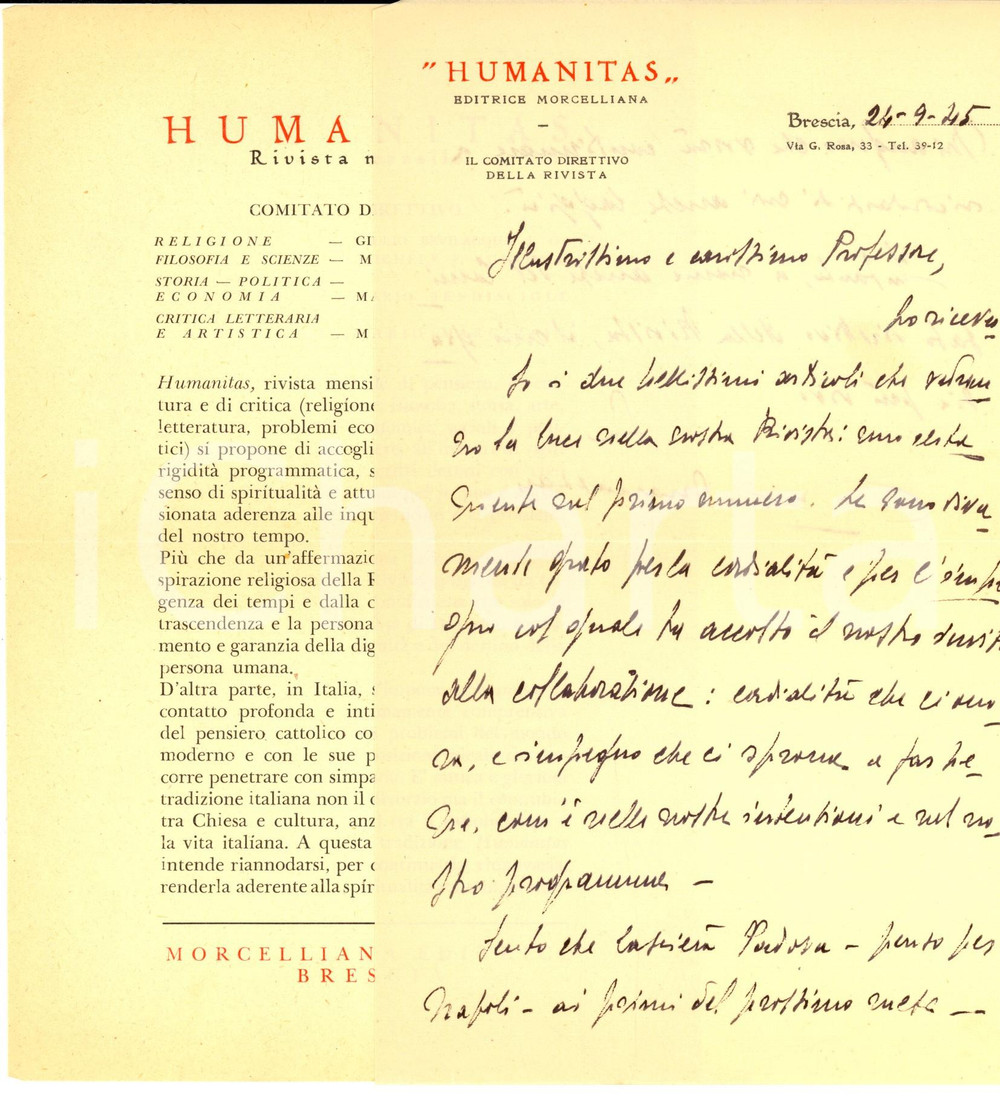 HUMA
Rivista m
COMITATO D
RELIGIONE — GI
FILOSOFIA E SCIENZE — M
STORIA — POLITICA —
ECONOMIA — MA
CRITICA LETTERARIA
E ARTISTICA — M
Humanitas, rivista mensi
tura e di critica (religione
letteratura, problemi eco
tici) si propone di accogli
rigidità programmatica, s
senso di spiritualità e attu
sionata aderenza alle inqu
del nostro tempo.
Più che da un'affermazio
spirazione religiosa della R
genza dei tempi e dalla c
trascendenza e la persona
mento e garanzia della dig
persona umana.
D'altra parte, in Italia, s
contatto profonda e inti
del pensiero cattolico co
moderno e con le sue p
corre penetrare con simpa
tradizione italiana non il c
tra Chiesa e cultura, anz
la vita italiana. A questa
intende riannodarsi, per c
renderla aderente alla spir
MORCELLIAN
BRES
"HUMANITAS„
EDITRICE MORCELLIANA
—
IL COMITATO DIRETTIVO
DELLA RIVISTA
Brescia, 24-9-45
Via G. Rosa, 33 - Tel. 39-12
Illustrissimo e carissimo Professore,
ho ricevu
to i due bellissimi articoli che vedran
no la luce nella nostra Rivista: uno certa
mente nel primo numero. Le sono viva
mente grato per la cordialità e per l'impe
gno col quale ha accolto il nostro invit
alla collaborazione: cordialità che ci ono
ra, e impegno che ci sprona a far be
ne, com'è nelle nostre intenzioni e nel no
stro programma —
Sento che lascierà Padova — penso per
Napoli — ai primi del prossimo mese —
icharta